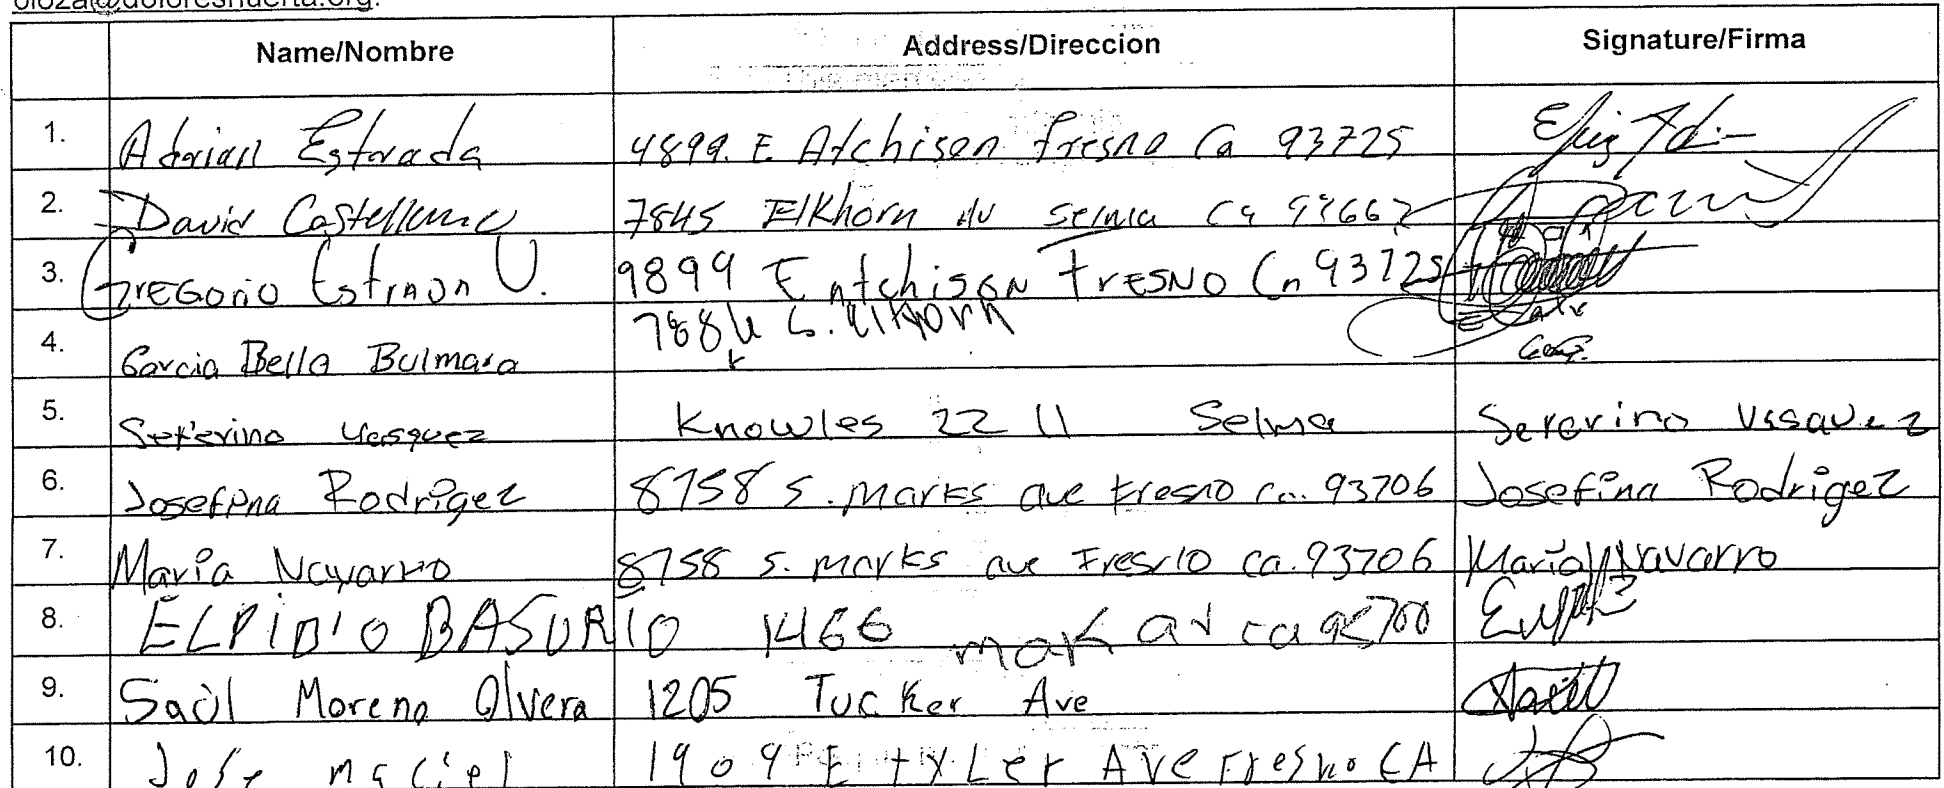 oloza@doloreshuerta.org.
Name/Nombre Address/Direccion Signature/Firma
1. Adrian Estrada 4899. E. Atchison fresno Ca 93725
2. David Castellano 7845 Elkhorn av selma Ca 93662
3. Gregorio Estrada V. 9899 E Atchison Fresno Ca 93725
4. Garcia Bella Bulmara 788 S. elkhorn
5. Seferino Vasquez Knowles 22 11 Selma Sererino Vasquez
6. Josefina Rodrigez 8758 S. marks ave fresno ca. 93706 Josefina Rodrigez
7. Maria Navarro 8758 S. marks ave Fresno ca. 93706 Maria Navarro
8. ELPIDIO BASURIO 1466 mark av ca
9. Saùl Moreno Olvera 1205 Tucker Ave
10. Jose maciel 1909 E tyLer AVe Fresno CA